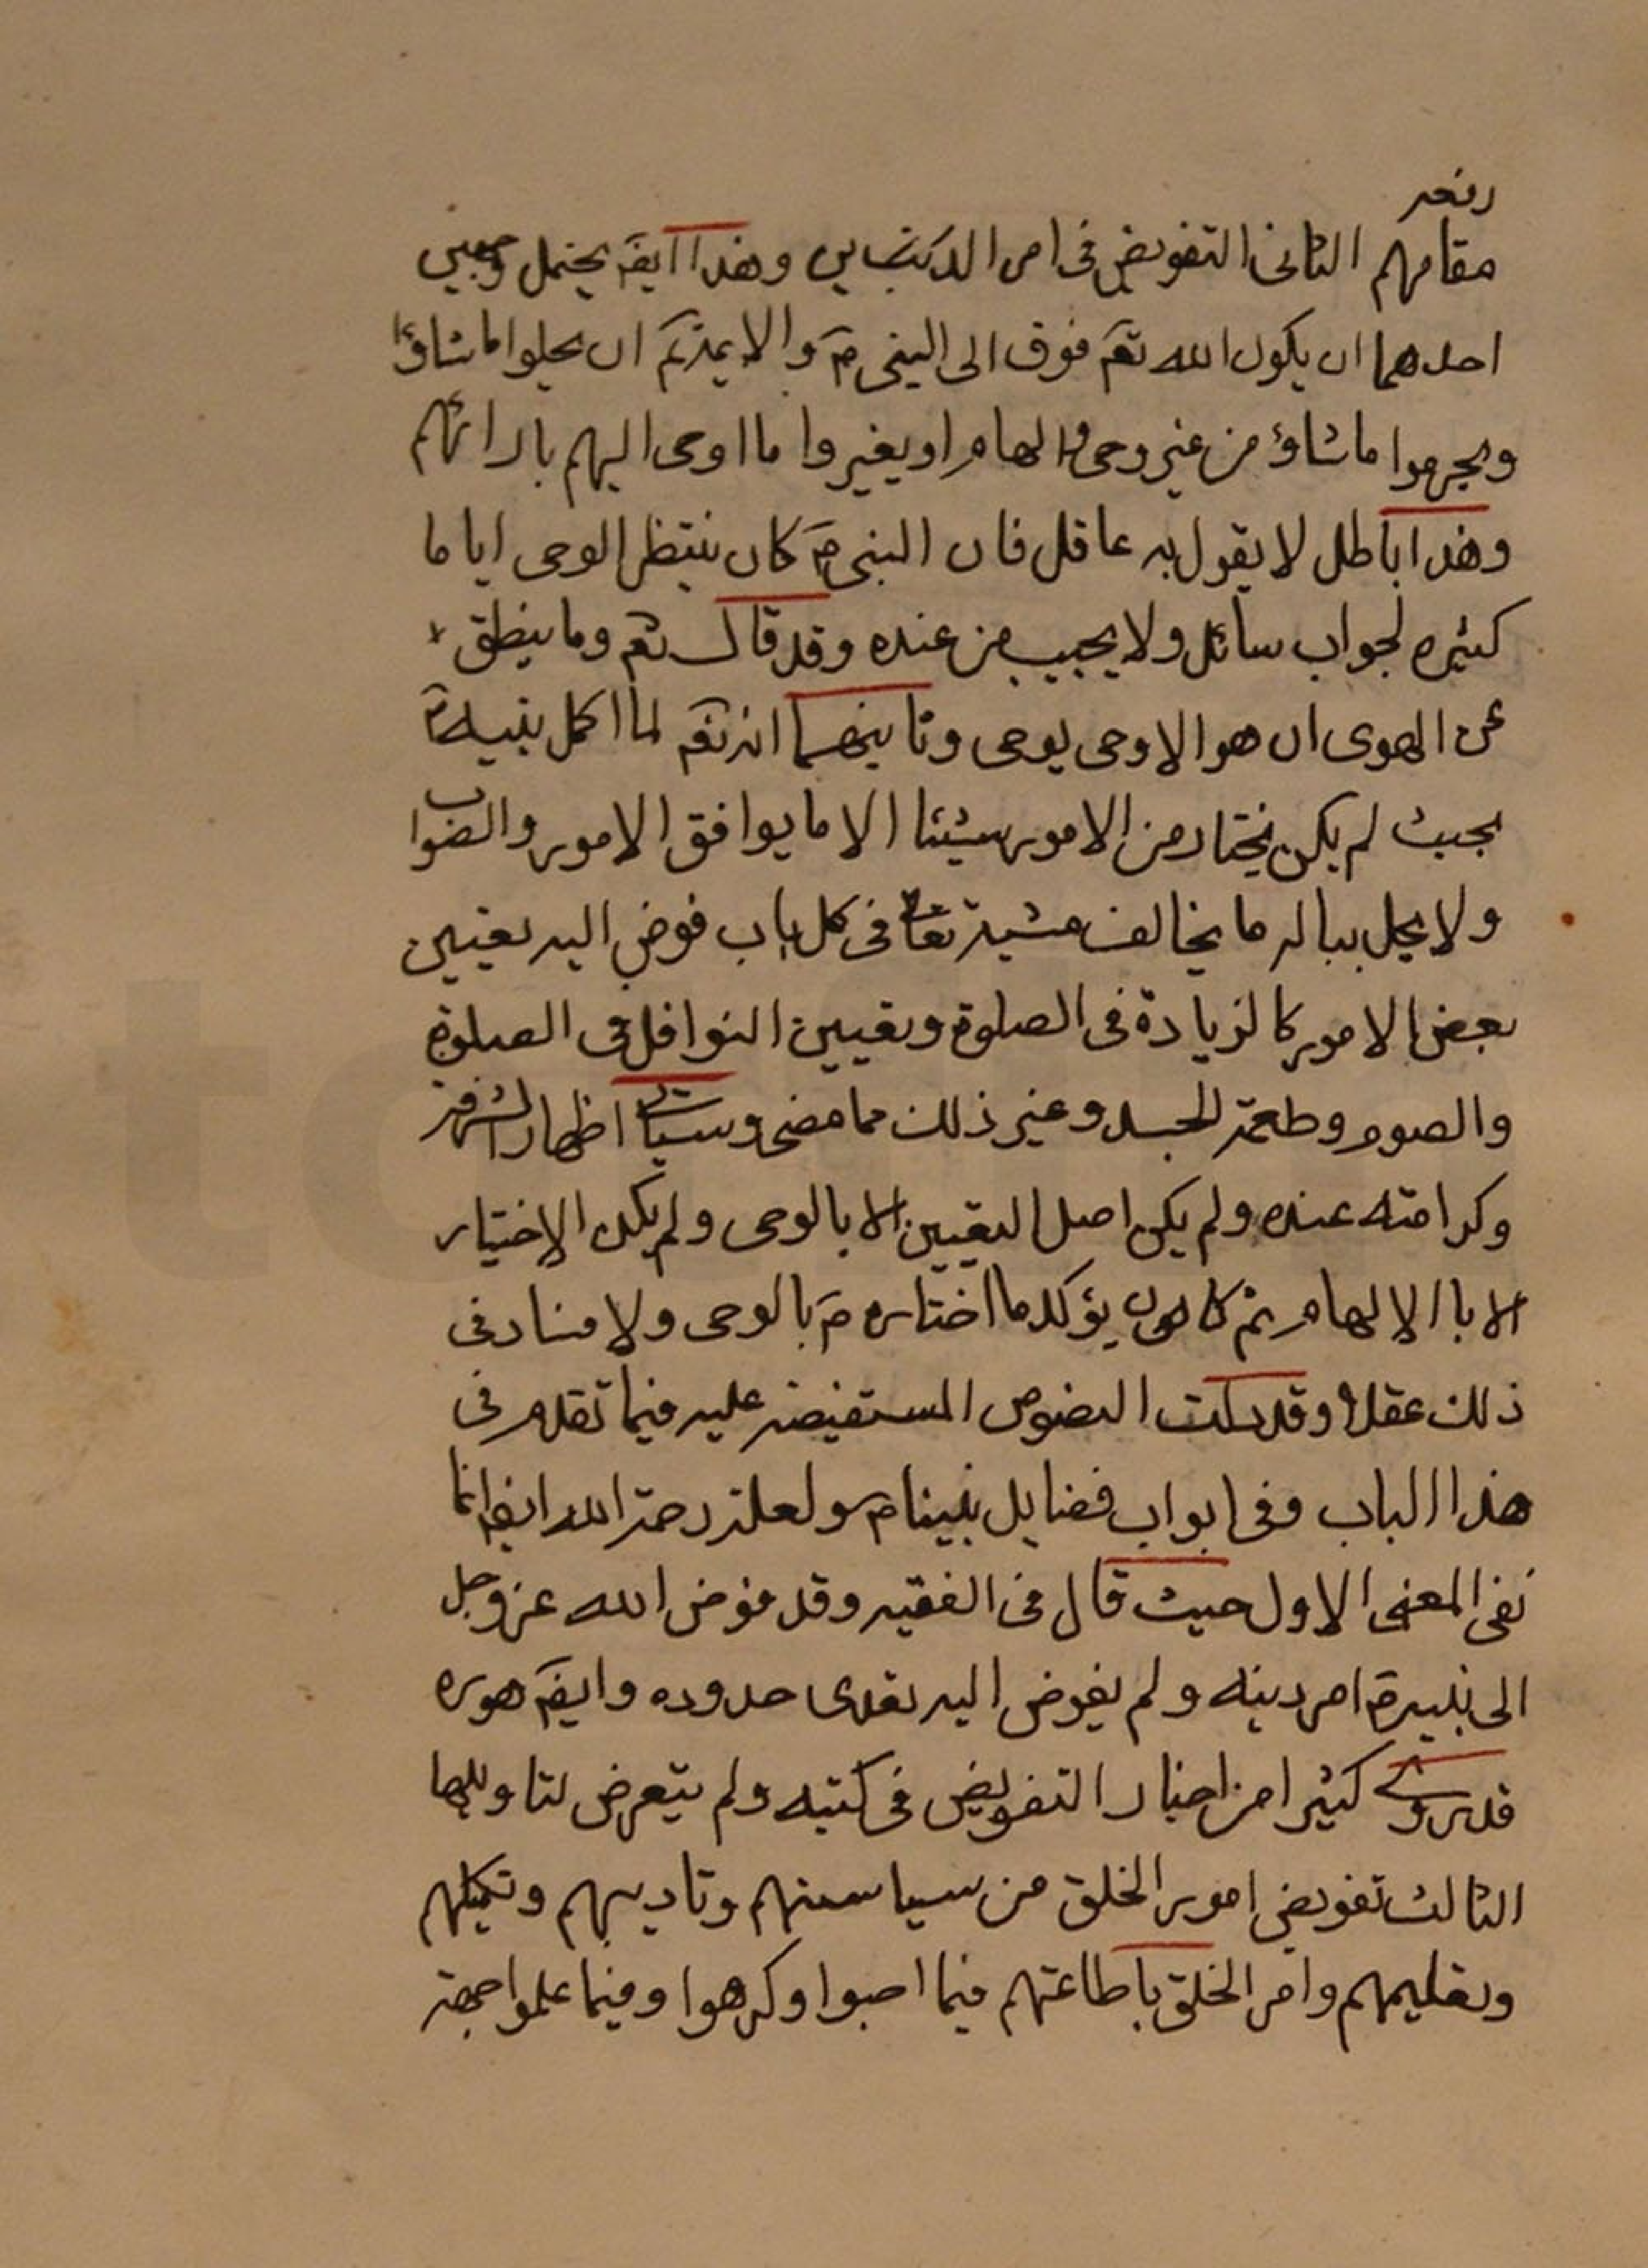 رفعه
مقامهم الثانى التفويض فى امر الدين وهذا ايضَ يحتمل وجهين
احدهما ان يكون الله تعَم فوض الى النبى صَ والايمة عَم ان يحلوا ما شاؤا
ويحرموا ماشاؤ من غير وحى والهام او يغيروا ما اوحى اليهم بارائهم
وهذا باطل لا يقول به عاقل فان النبى صَ كان ينتظر الوحى اياما
كثيره لجواب سائل ولا يجيب من عنده وقد قال تعَم وما ينطق
عن الهوى ان هو الا وحى يوحى وثانيهما انه تعَم لما اكمل نبيه صَ
بحيث لم يكن يختار من الامور شيئا الا ما يوافق الامور والصواب
ولا يحل بباله ما يخالف مشيته تعا فى كل باب فوض اليه تعيين
بعض الامور كالزيادة فى الصلوة وتعيين النوافل فى الصلوة
والصوم وطعمة الجد وغير ذلك مما مضى وسياتى اظهارا لشرفه
وكرامته عنده ولم يكن اصل التعيين الا بالوحى ولم يكن الاختيار
الا با الالهام ثم كان يؤكد ما اختاره صَ بالوحى ولا فساد فى
ذلك عقلا وقد دلت النصوص المستفيضة عليه فيما تقدم فى
هذا الباب وفى ابواب فضايل نبينا صَ ولعله رحمة الله ايضَ انما
نفى المعنى الاول حيث قال فى الفقيه وقد فوض الله عز وجل
الى نبيه صَ امر دينه ولم يفوض اليه تعدى حدوده وايضَ هو ره
قد روى كثيرا من اخبار التفويض فى كتبه ولم يتعرض لتاويلها
الثالث تفويض امور الخلق من سياستهم وتاديبهم وتكميلهم
وتعليمهم وامر الخلق باطاعتهم فيما احبوا وكرهوا وفيما علموا جهة